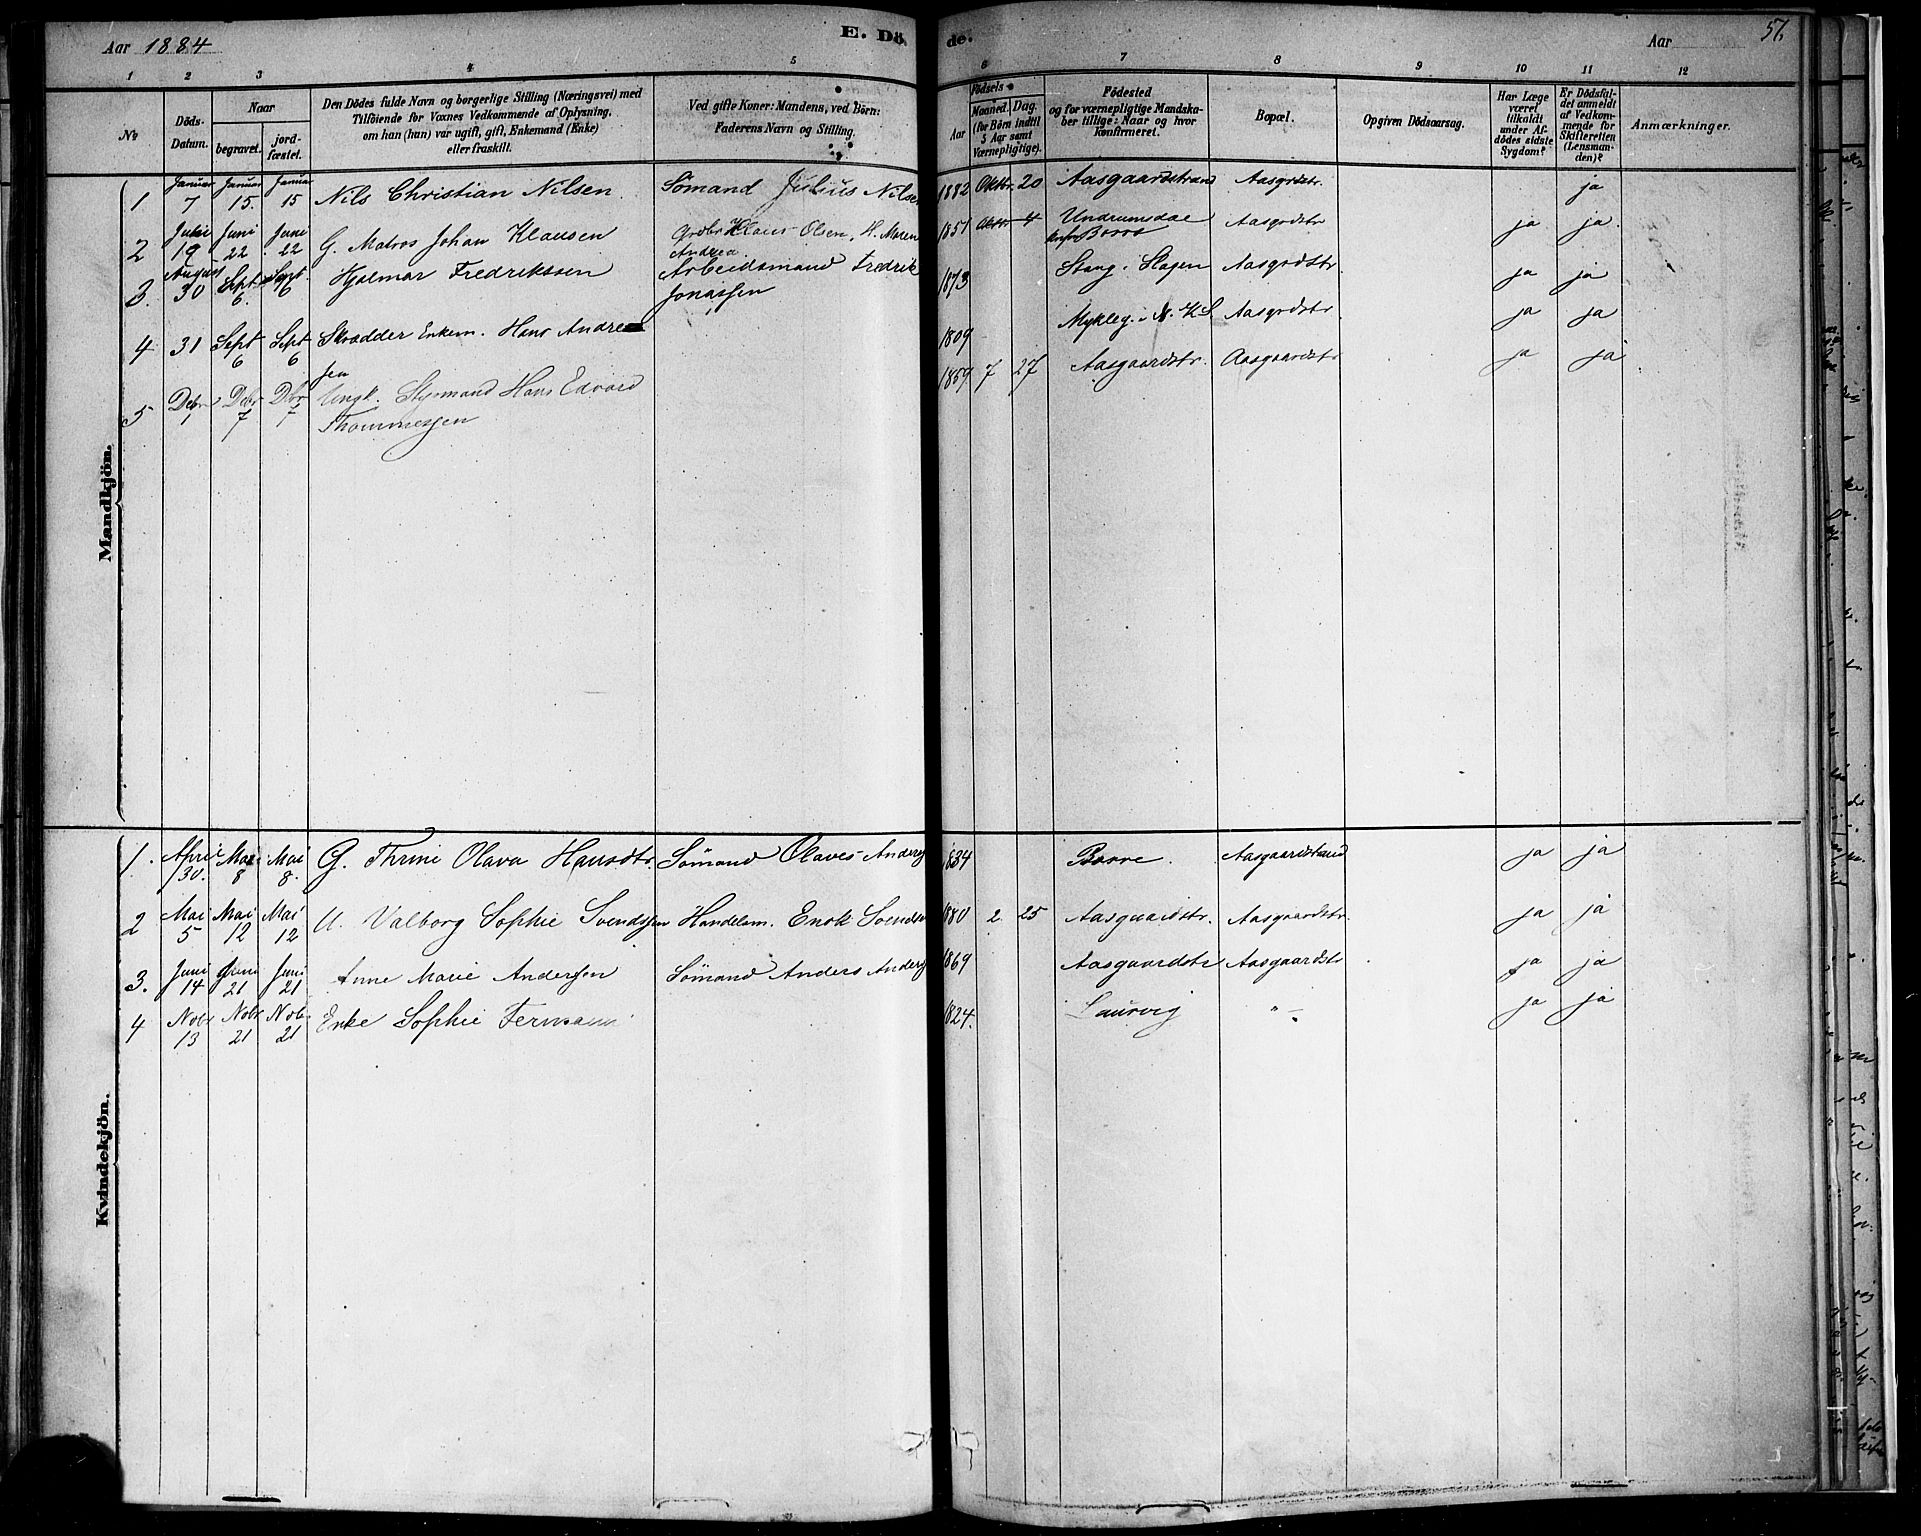 Aar 1884
E. Dö
de.
Aar
51.
1 2 3 4 5 6 7 8 9 10 11 12
No
Döds-
Datum.
Naar
begravet.
jord-
fæstet.
Den Dödes fulde Navn og borgerlige Stilling (Næringsvei) med
Tilföiende for Voxnes Vedkommende af Oplysning,
om han (hun) var ugift, gift, Enkemand (Enke)
eller fraskilt.
Ved gifte Koner: Mandens, ved Börn:
Faderens Navn og Stilling.
Födsels
Aar
Maaned.
Dag.
(for Börn indtil
5 Aar samt
Værnepligtige).
Födested
og for værnepligtige Mandska-
ber tillige: Naar og hvor
Konfirmeret.
Bopæl.
Opgiven Dödsaarsag.
Har Læge
været
tilkaldt
under Af-
dödes sidste
Sygdom?
Er Dödsfal-
det anmeldt
af Vedkom-
mende for
Skifteretten
(Lensman-
den)?
Anmærkninger.
Mandkjön.
1 Januar 7 Januar 15. Januar 15 Nils Christian Nilsen Sömand Julius Nilsen 1882 Oktbr. 20 Aasgaardstrand Aasgrdstr. ja
2 Juni 19 Juni 22 Juni 22 G. Matros Johan Klausen Grdbr Klaus Olsen, H. Maren
Andrea 1851 Oktbr 4 Undrumsdal
Borre Aasgrdstr ja ja
3. August 30 Sept 6. Sept 6 Hjalmar Fredrikssen Arbeidsmand Fredrik
Jonassen 1873 Stang i Slagen Aasgrdstr. ja ja
4 31 Sept 6 Sept 6 Skrædder Enkem. Hans Andrea
sen 1809 Mykleg. i Aasgrdstr. ja ja
5 Debr 1 Debr 7 Debr 7 Ungk. Styrmand Hans Edvard
Thommessen 1859 7 27 Aasgaardstr. Aasgaardstr ja ja
Kvindekjön.
1. April 30. Mai 8 Mai 8. G. Thrine Olava Hansdtr. Sömand Olaves Anders 1834 Borre. Aasgaardstrand ja ja
2 Mai 5 Mai 12 Mai 12 U. Valborg Sophie Svendssen Handelsm. Enok Svends 1880 2. 25 Aasgaardstr. Aasgaardstr. ja ja
3. Juni 14 Juni 21 Juni 21 Anne Marie Andersen Sömand Anders Anders 1869 Aasgaardstr Aasgaardstr ja ja
4 Nobr 13 Nobr 21 Nobr 21 Enke Sophie Fermann 1824. Laurvig " - ja ja